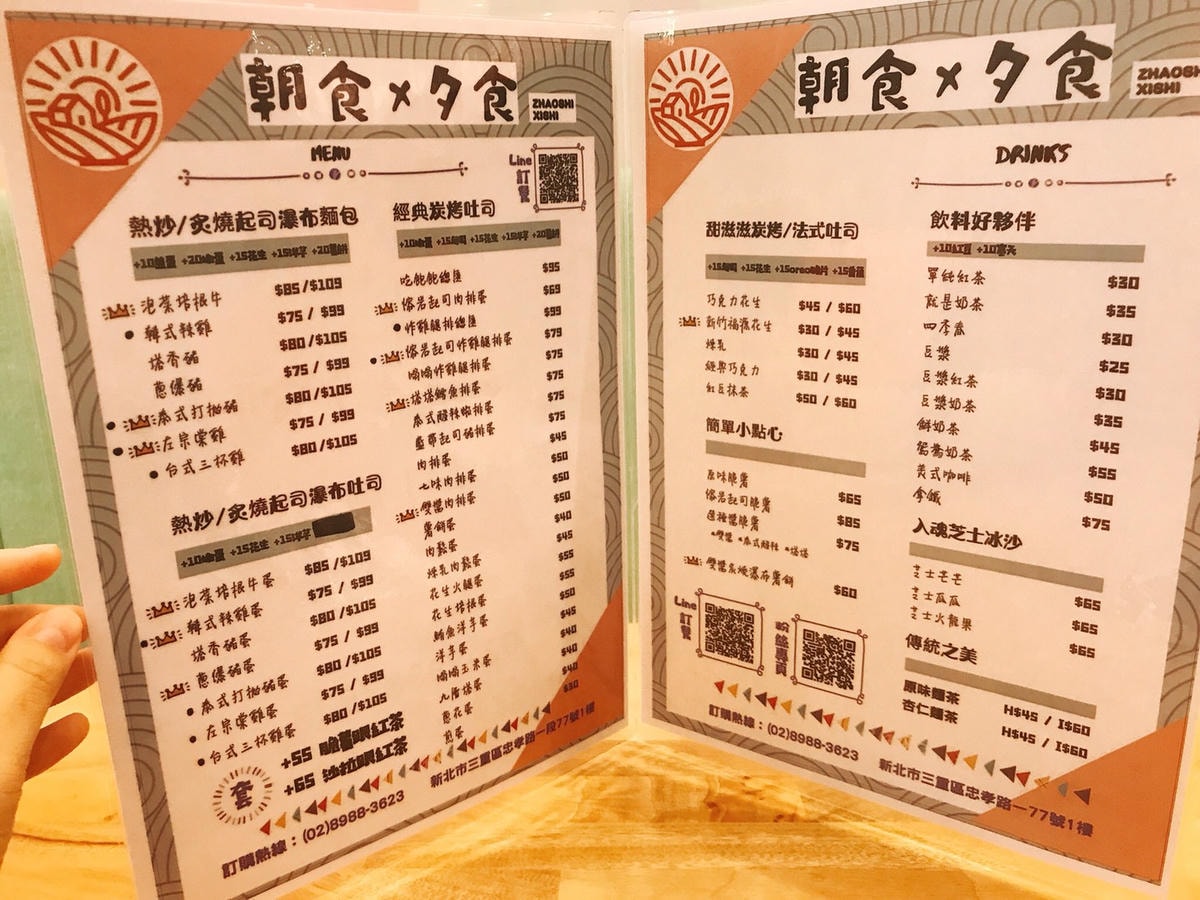 朝食×夕食
ZHAOSHI
XISHI
MENU
Line
訂餐
熱炒/炙燒起司瀑布麵包
泡菜培根牛 $85/$109
韓式辣雞 $75 / $99
塔香豬 $80/$105
蔥爆豬 $75 / $99
泰式打拋豬 $80/$105
左宗棠雞 $75 / $99
台式三杯雞 $80/$105
熱炒/炙燒起司瀑布吐司
泡菜培根牛蛋 $85/$109
韓式辣雞蛋 $75 / $99
塔香豬蛋 $80/$105
蔥爆豬蛋 $75 / $99
泰式打拋豬蛋 $80/$105
左宗棠雞蛋 $75 / $99
台式三杯雞蛋 $80/$105
套
+55 脆薯+紅茶
+65 沙拉+紅茶
經典炭烤吐司
吃飽飽總匯 $95
傑呂起司肉排蛋 $69
炸雞腿排總匯 $99
傑呂起司炸雞腿排蛋 $79
嫩嫩炸雞腿排蛋 $75
塔塔鱈魚排蛋 $75
泰式酸辣蝦排蛋 $75
藍帶起司豬排蛋 $75
肉排蛋 $45
七味肉排蛋 $50
雙醬肉排蛋 $50
薯餅蛋 $50
肉鬆蛋 $40
煉乳肉鬆蛋 $45
花生火腿蛋 $55
花生培根蛋 $55
鮪魚洋芋蛋 $50
洋芋蛋 $45
嫩嫩玉米蛋 $40
九層塔蛋 $40
蔥花蛋 $40
煎蛋 $30
訂購熱線：(02)8988-3623 新北市三重區忠孝路一段77號1樓
朝食×夕食
ZHAOSHI
XISHI
DRINKS
甜滋滋炭烤/法式吐司
巧克力花生 $45 / $60
新竹福源花生 $30 / $45
煉乳 $30 / $45
經典巧克力 $30 / $45
紅豆抹茶 $50 / $60
簡單小點心
原味脆薯 $65
傑呂起司脆薯 $85
選種醬脆薯 $75
•雙醬 •泰式酸辣 •塔塔
雙醬炙燒瀑布薯餅 $60
Line
訂餐
粉絲專頁
飲料好夥伴
+10紅豆 +10寒天
單純紅茶 $30
就是奶茶 $35
四季春 $30
豆漿 $25
豆漿紅茶 $30
豆漿奶茶 $35
鮮奶茶 $45
鴛鴦奶茶 $55
美式咖啡 $50
拿鐵 $75
入魂芝士冰沙
芝士芒芒 $65
芝士瓜瓜 $65
芝士火龍果 $65
傳統之美
原味麵茶 H$45 / I$60
杏仁麵茶 H$45 / I$60
訂購熱線：(02)8988-3623 新北市三重區忠孝路一77號1樓